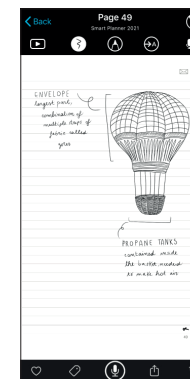 Back
Page 49
Smart Planner 2021
A
A
ENVELOPE
largest part,
combination of
multiple drops of
fabric called
gores
PROPANE TANKS
contained inside
the basket needed
to make hot air